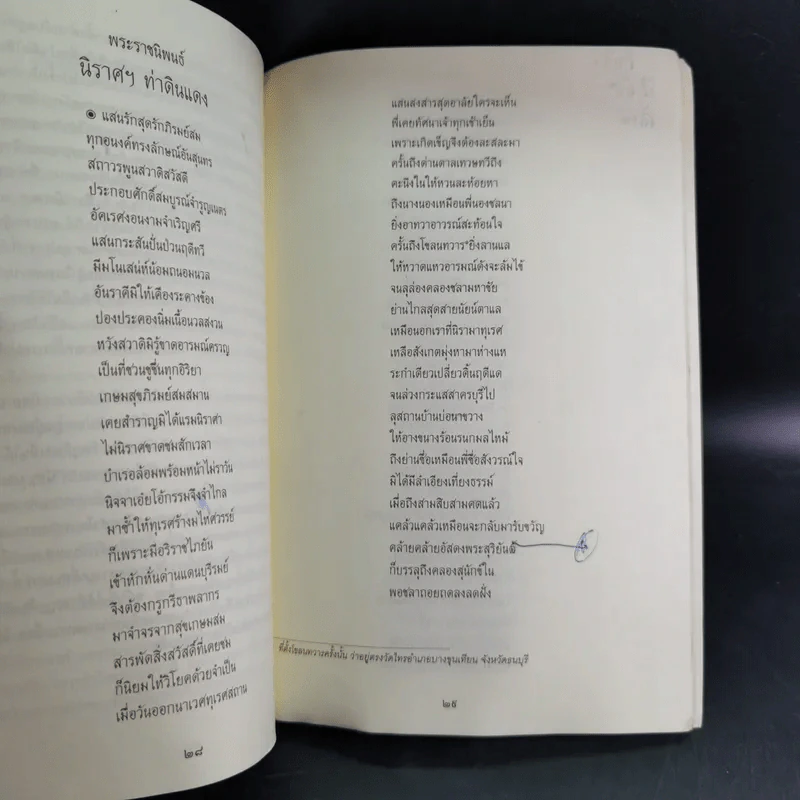 พระราชนิพนธ์
นิราศฯ ท่าดินแดง
๏ แสนรักสุดรักภิรมย์สม
ทุกอนงค์ทรงลักษณ์อันสุนทร
สถาวรพูนสวาดิสวัสดี
ประกอบศักดิ์สมบูรณ์จำรูญเนตร
อัคเรศงอนงามจำเริญศรี
แสนกระสันปั่นป่วนฤดีทวี
มีมโนเสน่ห์น้อมถนอมนวล
อันราคีมิให้เคืองระคางข้อง
ปองประคองนิ่มเนื้อนวลสงวน
หวังสวาดิมิรู้ขาดอารมณ์ครวญ
เป็นที่ชวนชูชื่นทุกอิริยา
เกษมสุขภิรมย์สมสมาน
เคยสำราญมิได้แรมนิราศา
ไม่นิราศขาดชมสักเวลา
บำเรอล้อมพร้อมหน้าไม่ราวัน
นิจจาเอ๋ยโอ้กรรมจึงจำไกล
มาซ้ำให้ทุเรศร้างมไหศวรรย์
ก็เพราะมีอริราชไภยัน
เข้าหักหั่นด่านแดนบุรีรมย์
จึงต้องกรูกรีธาพลากร
มาจำจรจากสุขเกษมสม
สารพัดสิ่งสวัสดิ์ที่เคยชม
ก็นิยมให้วิโยคด้วยจำเป็น
เมื่อวันออกนาเวศทุเรศสถาน
๒๘
แสนสงสารสุดอาลัยใครจะเห็น
พี่เคยทัศนาเจ้าทุกเช้าเย็น
เพราะเกิดเข็ญจึงต้องละสละมา
ครั้นถึงด่านดาลเทวษทวีถึง
คะนึงในให้หวนละห้อยหา
ถึงนางนองเหมือนพี่นองชลนา
ยิ่งอาทวาอาวรณ์สะท้อนใจ
ครั้นถึงโขลนทวาร*ยิ่งลานแล
ให้หวาดแหวอารมณ์ดังจะล้มไข้
จนลุล่องคลองชลามหาชัย
ย่านไกลสุดสายนัยน์ตาแล
เหมือนอกเราที่นิรามาทุเรศ
เหลือสังเกตมุ่งหามาห่างแห
ระกำเดียวเปลี่ยวดิ้นฤดีแด
จนล่วงกระแสสาครบุรีไป
ลุสถานบ้านบ่อนาขวาง
ให้อางขนางร้อนรนกมลไหม้
ถึงย่านซื่อเหมือนพี่ซื่อสังวรณ์ใจ
มิได้มีลำเอียงเที่ยงธรรม์
เมื่อถึงสามสิบสามคดแล้ว
แคล้วแคล้วเหมือนจะกลับมารับขวัญ
คล้ายคล้ายอัสดงพระสุริยัน
ก็บรรลุถึงคลองสุนัขใน
พอชลาถอยถดลงลดฝั่ง
ที่ตั้งโขลนทวารครั้งนั้น ว่าอยู่ตรงวัดไทรอำเภอบางขุนเทียน จังหวัดธนบุรี
๒๙